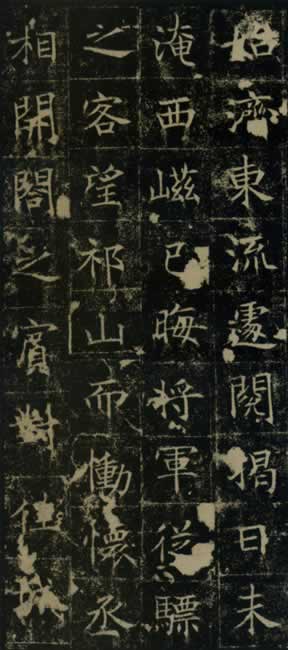 濟東流遽閱揭日未
淹西嵫已晦將軍從驃
之客望祁山而慟懷丞
相開閤之賓對佳城